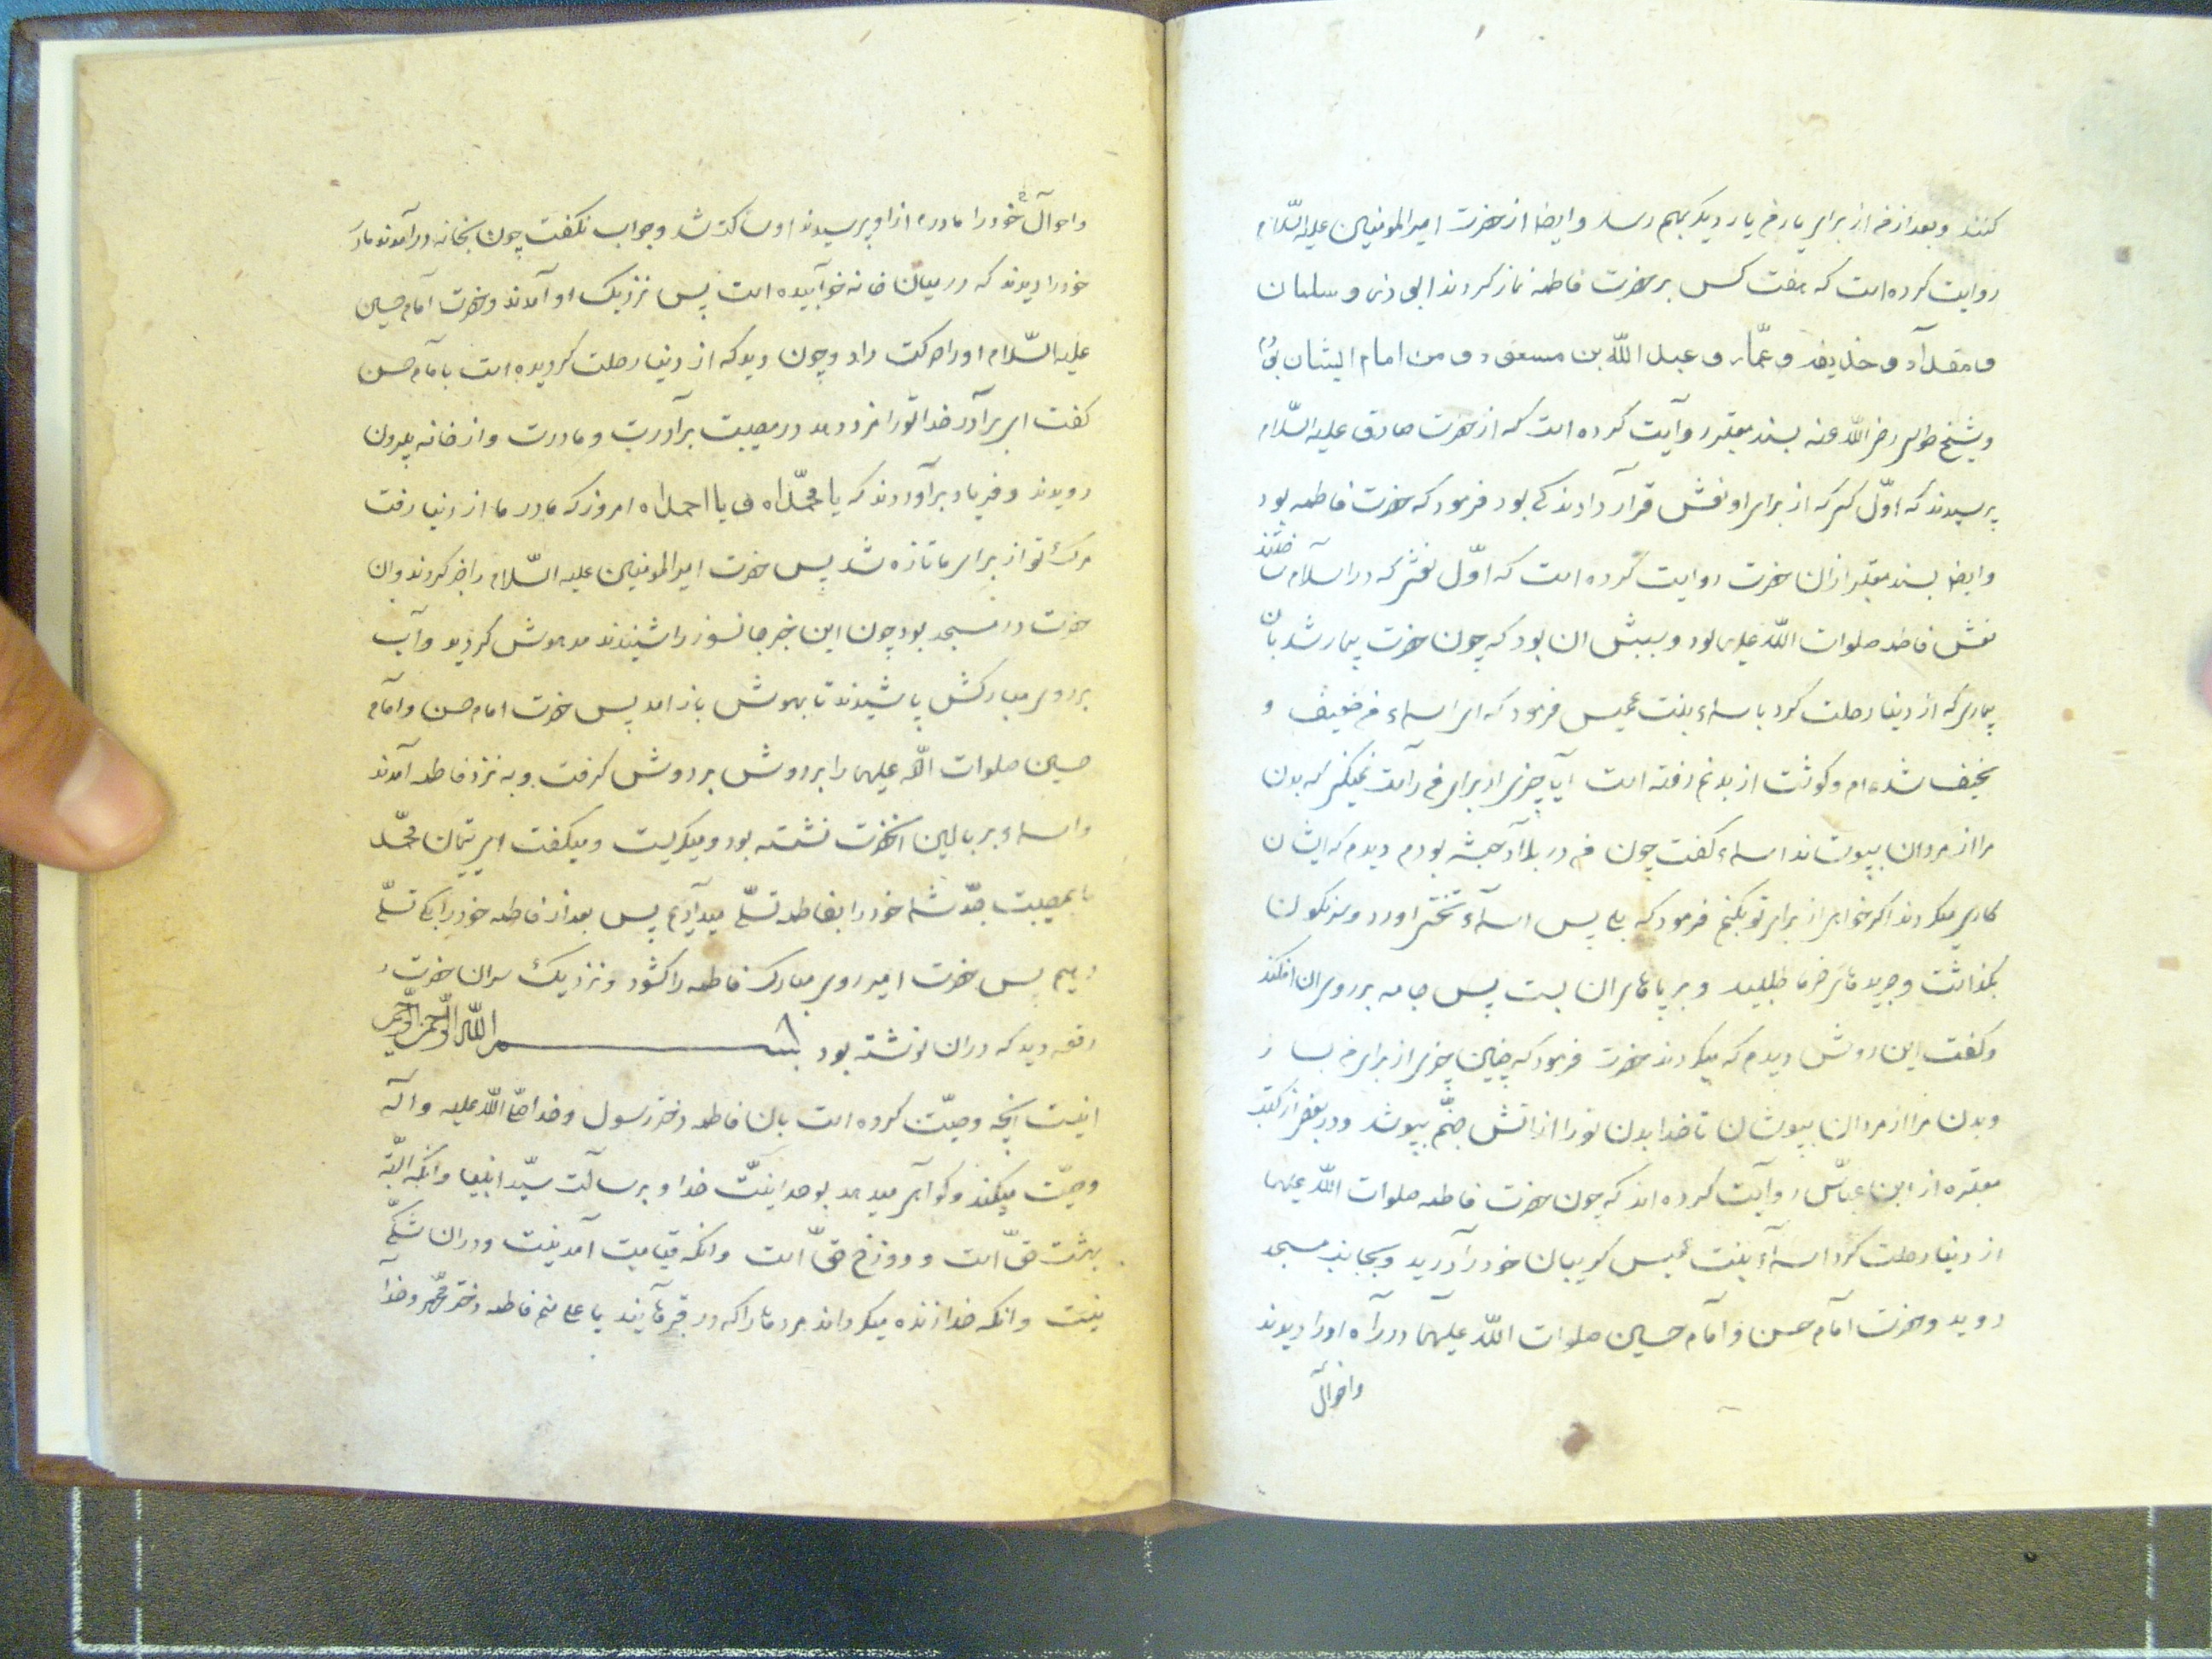 کنند و بعد از من از برای یار من یار دیگر بهم رسد و ایضا از حضرت امیر المومنین علیه السّلام
روایت کرده است که هفت کس بر حضرت فاطمه نماز کردند ابی ذر و سلمان
و مقداد و حذیفه و عمّار و عبد اللّه بن مسعود و من امام ایشان بودم
و شیخ طوسی رضی اللّه عنه بسند معتبر روایت کرده است که از حضرت صادق علیه السّلام
پرسیدند که اوّل کسی که از برای او نعش قرار دادند کی بود فرمود که حضرت فاطمه بود
و ایضا بسند معتبر از ان حضرت روایت کرده است که اوّل نعشی که در اسلام ساختند
نعش فاطمه صلوات اللّه علیها بود و سببش ان بود که چون حضرت بیمار شد بان
بیماری که از دنیا رحلت کرد باسماء بنت عمیس فرمود که ای اسماء من ضعیف و
نحیف شده ام و گوشت از بدنم رفته است آیا چیزی از برای من راست نمیکنی که بدن
مرا از مردان بپوشاند اسماء گفت چون من در بلاد حبشه بودم دیدم که ایشان
کاری میکردند اگر خواهی از برای تو بکنم فرمود که بلی پس اسماء تختی اورد و سرنگون
بگذاشت و جریدهای خرما طلبید و بر پاهای ان بست پس جامه بر روی ان افکند
و گفت این روش دیدم که میکردند حضرت فرمود که چنین چیزی از برای من بساز
و بدن مرا از مردان بپوشان تا خدا بدن تو را از اتش جهنّم بپوشد و در بعضی از کتب
معتبره از ابن عباس روایت کرده اند که چون حضرت فاطمه صلوات اللّه علیها
از دنیا رحلت کرد اسماء بنت عمیس گریبان خود را درید و بجانب مسجد
دوید و حضرت امام حسن و امام حسین صلوات اللّه علیهما در راه اورا دیدند
واحوال
واحوال خود را مادر از او پرسیدند او ساکت شد و جواب نگفت چون بخانه در آمدند مادر
خود را دیدند که در میان خانه خوابیده است پس نزدیک او آمدند و حضرت امام حسین
علیه السّلام اورا حرکت داد و چون دید که از دنیا رحلت گردیده است بامام حسن
گفت ای برادر خدا تو را مزد دهد در مصیبت مادرت و از خانه بیرون
دویدند و فریاد برآوردند که یا محمّداه و یا احمداه امروز که مادر ما از دنیا رفت
مرک تو از برای ما تازه شد پس حضرت امیر المومنین علیه السّلام را خبر کردند وان
حضرت در مسجد بود چون این خبر جانسوز را شنیدند مدهوش گردید و آب
بر روی مبارکش پاشیدند تا بهوش باز امد پس حضرت امام حسن و امام
حسین صلوات اللّه علیهما را بر دوش گرفت و به نزد فاطمه آمدند
و اسماء بر بالین انحضرت نشسته بود و میگریست و میگفت ای یتیمان محمّد
ما بمصیبت جدّ شما خود را بفاطمه تسلّی میدادیم پس بعد از فاطمه خود را بکی تسلّی
دهیم پس حضرت امیر روی مبارک فاطمه را گشود و نزدیک سر ان حضرت
رقعه دید که در ان نوشته بود بسم اللّه الرّحمن الرّحیم
اینست انچه وصیّت کرده است بان فاطمه دختر رسول خدا صلّی اللّه علیه و آله
وصیّت میکند و گواهی میدهد بوحدانیّت خدا و برسالت سیّد انبیا و انکه البتّه
بهشت حقّ است و دوزخ حقّ است و انکه قیامت آمدنیست و در ان شکّی
نیست و انکه خدا زنده میگرداند مردها را که در قبرهایند یا علی منم فاطمه دختر محمّد و خدا